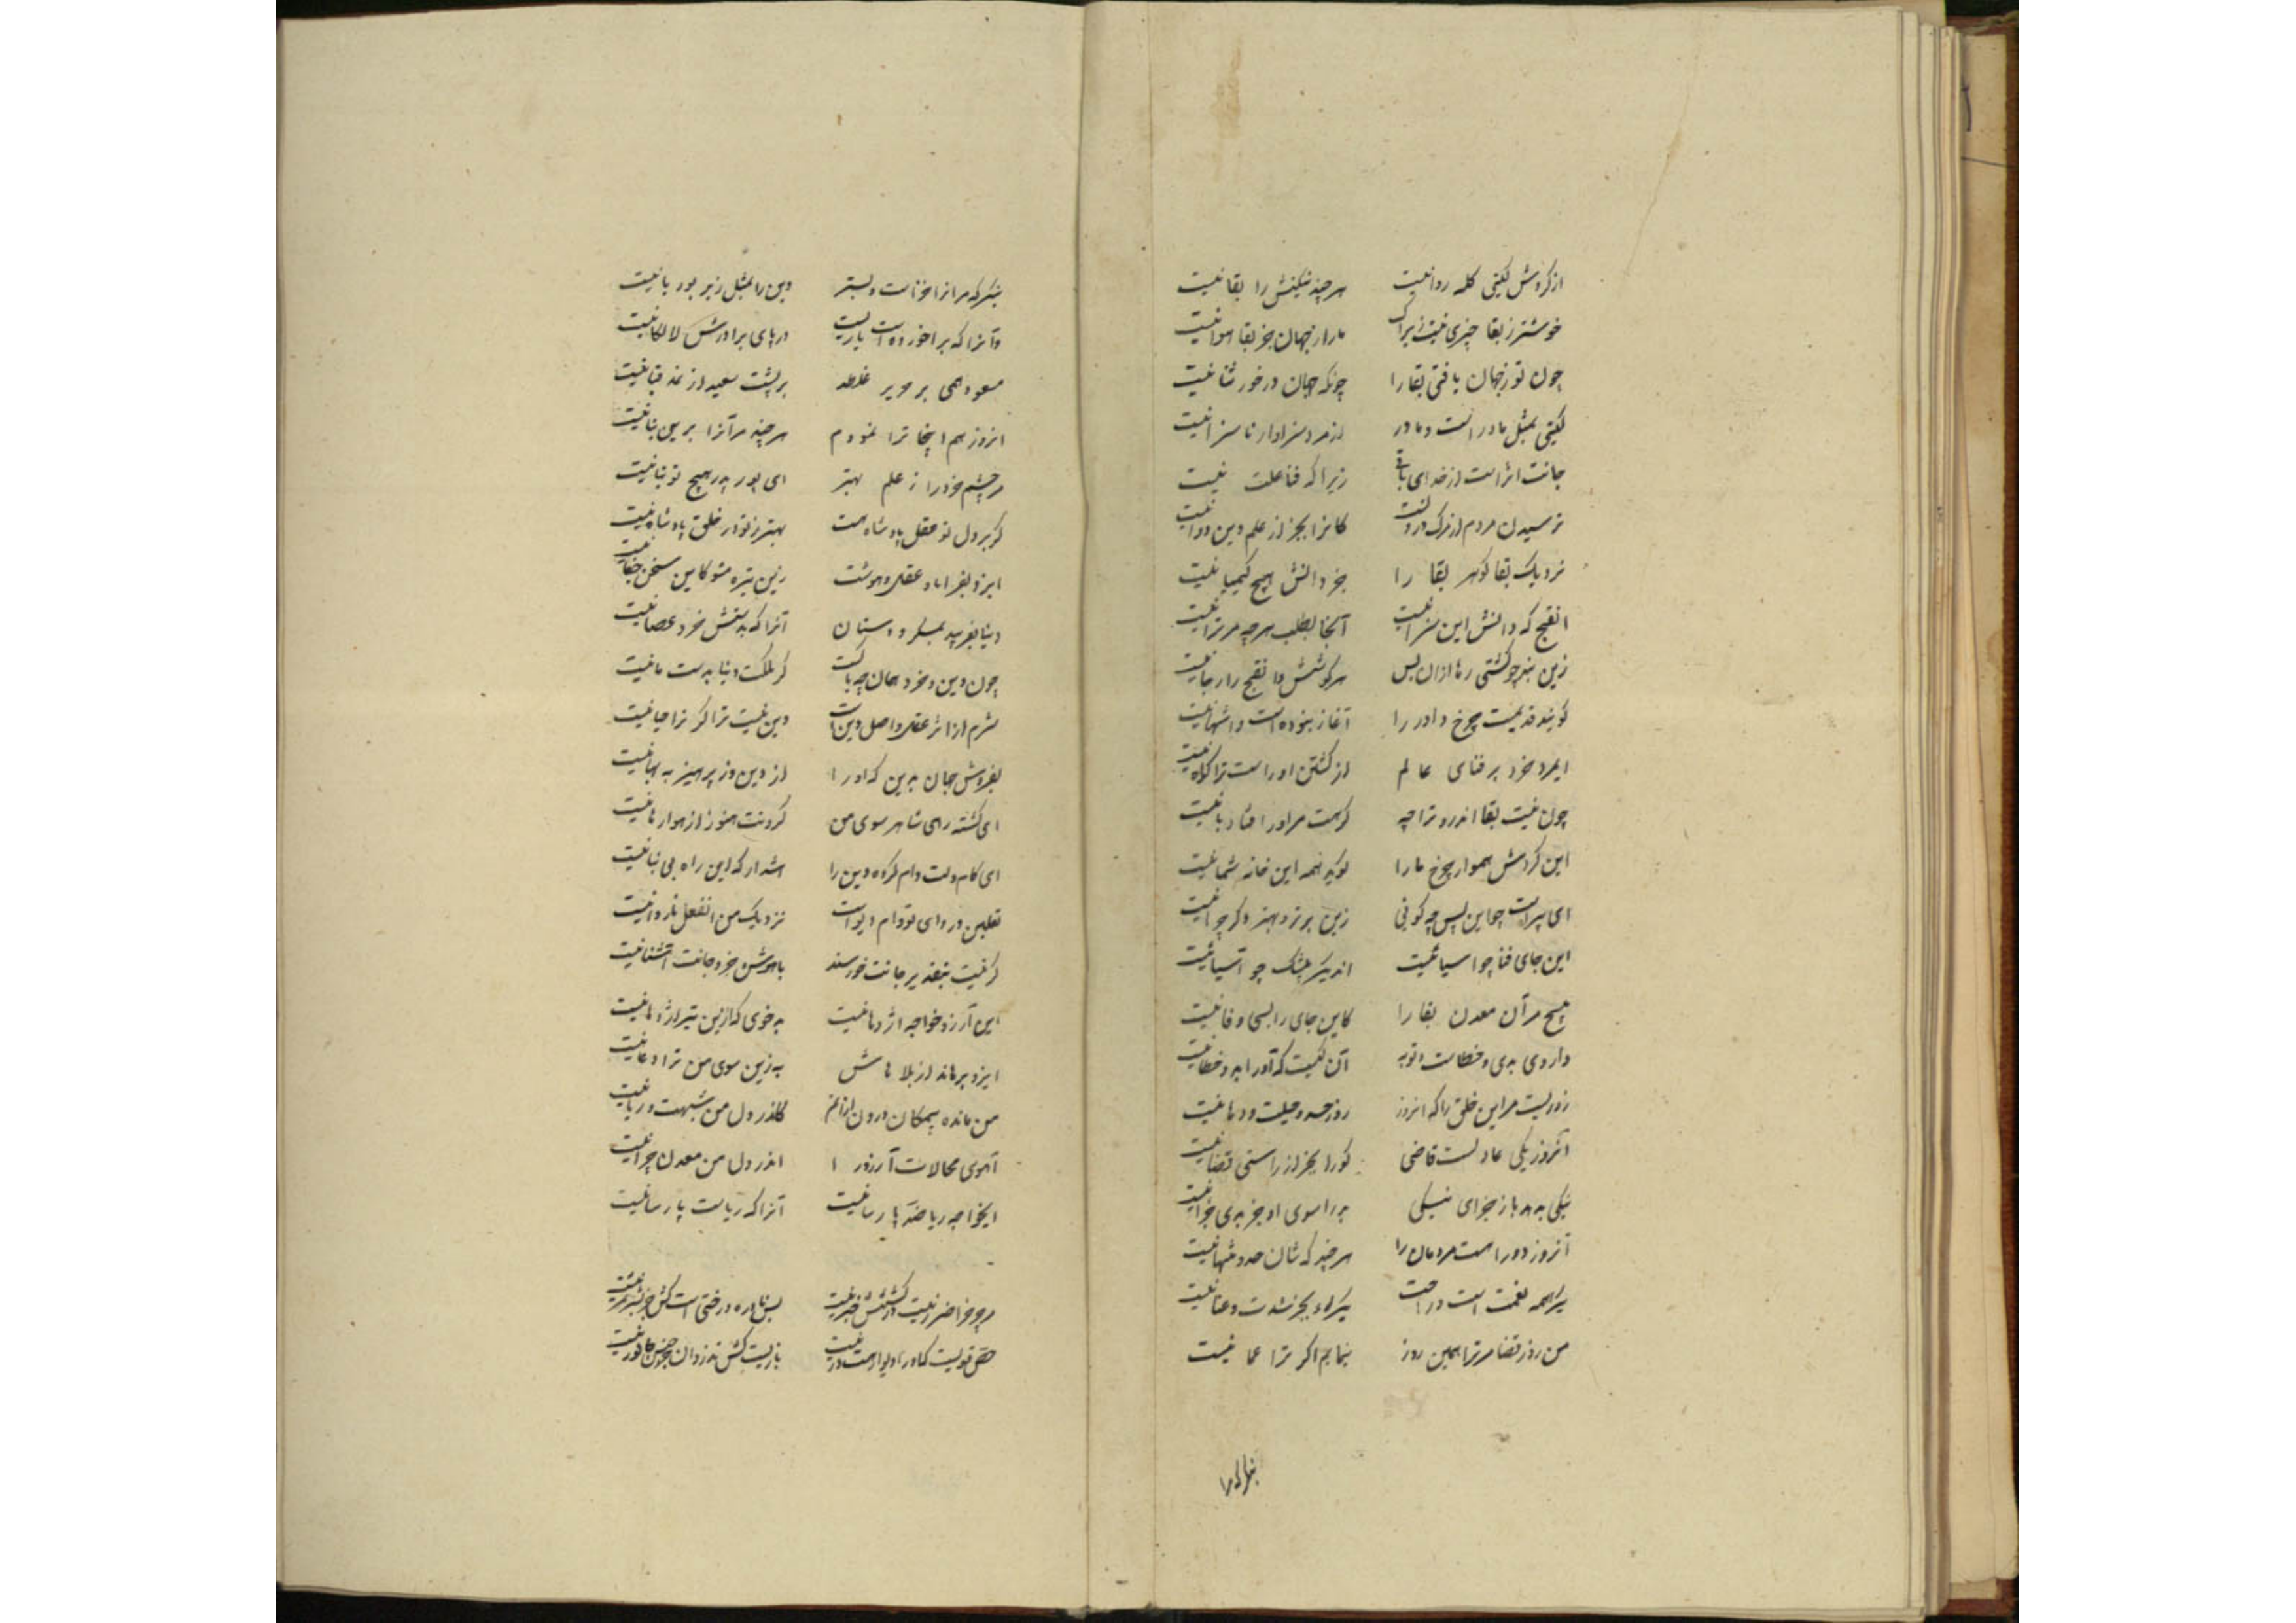 از گردش گیتی گله روا نیست    هر چند نیکیش را بقا نیست
خوشتر ز بقا چیزی نیست زیراک    ما را ز جهان جز بقا هوا نیست
چون تو ز جهان یافتی بقا را    چونکه جهان درخور ثنا نیست
گیتی بمثل مادر است و مادر    از مرد سزاوار ناسزا نیست
جانت اثر است از خدای باقی    زیرا که فنا علت نیست
ترسیدن مردم از مرگ دردیست    کانرا بجز از علم دین دوا نیست
نزدیک بقا گوهر بقا را    جز دانش هیچ کیمیا نیست
الفنج که دانش این سرا نیست    آنجا بطلب هرچه مر ترا نیست
زین بند چو گشتی رها ازان پس    مر کوشش و الفنج را رجا نیست
گویند قدیمست چرخ و او را    آغاز نبوده است و انتها نیست
ای مرد خرد بر فنای عالم    از گشتن او راست تر گوا نیست
چون نیست بقا اندرو ترا چه    گر هست مر او را فنا و یا نیست
این گردش هموار چرخ ما را    گوید همه این خانه شما نیست
ای پیر است چو این پس چه گوئی    زین برتر و بهتر دگر چرا نیست
این جای فنا چو آسیا نیست    اندیشه بیشک چو آسیا نیست
بسیج مر آن معدن بقا را    کاین جای را بسی وفا نیست
داروی بدی و خطاست توبه    آن کیست که او را بد و خطا نیست
روزیست مر این خلق را که آنروز    روز حسد و حیلت و دها نیست
آنروز یکی عادلست قاضی    کو را بجز از راستی قضا نیست
نیکی بدهد باز جزای نیکی    بد را سوی او جز بدی جزا نیست
آنروز دو راه است مردمان را    هر چند که شان حد و منتها نیست
یک راه همه نعمت است و راحت    یک راه بجز شدت و عنا نیست
من روز قضا مر ترا همین روز    بنمایم اگر ترا عما نیست
بنگر که مر آنرا خز است و بستر    وین را بمثل زیر بوریا نیست
وانرا که بر آخور ده اسپ تازیست    در پای برادرش لالکا نیست
مسعود همی بر حریر غلطد    بر پشت سعید از نمد قبا نیست
آنروز هم اینجا ترا نمودم    هر چند مر آنرا برین بنا نیست
مر چشم خرد را ز علم بهتر    ای پور پدر هیچ توتیا نیست
گر بر دل تو عقل پادشاهست    بهتر ز تو در خلق پادشا نیست
ایزد بفزایاد عقل و هوشت    زین تیره مشو کاین سخن جفا نیست
دنیا بفریبد بمکر و دستان    آنرا که بدستش خرد عصا نیست
چون دین و خرد هستمان چه باکست    گر ملکت دنیا بدست ما نیست
شرم از اثر عقل و اصل دین است    دین نیست ترا گر ترا حیا نیست
بفروش جهان بدین که او را    از دین وز پرهیز به بها نیست
ای گشته رهی شاه سوی من    گردنت هنوز از هوا رها نیست
ای کام دلت دام کرده دین را    هشدار که این راه بی نیا نیست
نعلین و ردای تو دام دیو است    نزدیک من آن فعل ناروا نیست
گر نیست بتقدیر جانت خورسند    با هوش خرد جانت آشنا نیست
این آرزو خواجه اژدها نیست    بدخوی که ازین بتر اژدها نیست
ایزد برهاند از بلاهاش    به زین سوی من ترا دعا نیست
من مانده بیمکان درون ازانم    کاندر دل من شبهت و ریا نیست
آهوی محالات آرزو را    اندر دل من معدن چرا نیست
ایخواجه ریا ضد پارسا نیست    آنرا که ریاست پارسا نیست